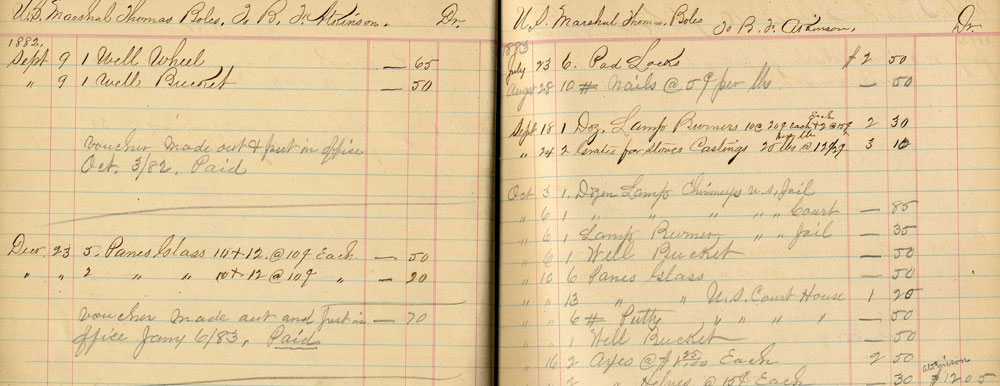 U.S. Marshal Thomas Boles, To B. F. Atkinson. Dr.
1882.
Sept 9 1 Well Wheel — 65
" 9 1 Well Bucket — 50
voucher made out & put in office
Oct. 3/82. Paid
Decr 23 5. Panes Glass 10+12 @ 10¢ Each — 50
" " 2 " " 10+12 @ 10¢ " — 20
voucher made out and put in — 70
office Jany 6/83, Paid
U.S. Marshal Thomas. Boles To B. F. Atkinson, Dr.
1883
July 23 6. Pad Locks $2 50
Augst 28 10 # Nails @ 5¢ per lbs — 50
Sept 18 1 Doz, Lamp Burners 10 @ 20¢ Each & 2 @ 15¢ Each 2 30
" 24 2 Grates for Stoves Castings 25 lbs @ 12½¢ 3 10
Oct 5 1. Dozen Lamp Chimneys U.S. Jail
" 6 1 " " " " " Court — 85
" 6 1 Lamp Burner, " " Jail — 35
" 9 1 Well Bucket — 50
" 10 6 Panes Glass — 50
" " 13 " " U.S. Court House 1 20
" " 6 # Putty " " " " — 50
" " 1 Well Bucket — 50
" 16 2 Axes @ $1 25/100 Each 2 50
2 " Helves @ 15¢ Each — 30 Atkinson $12.05